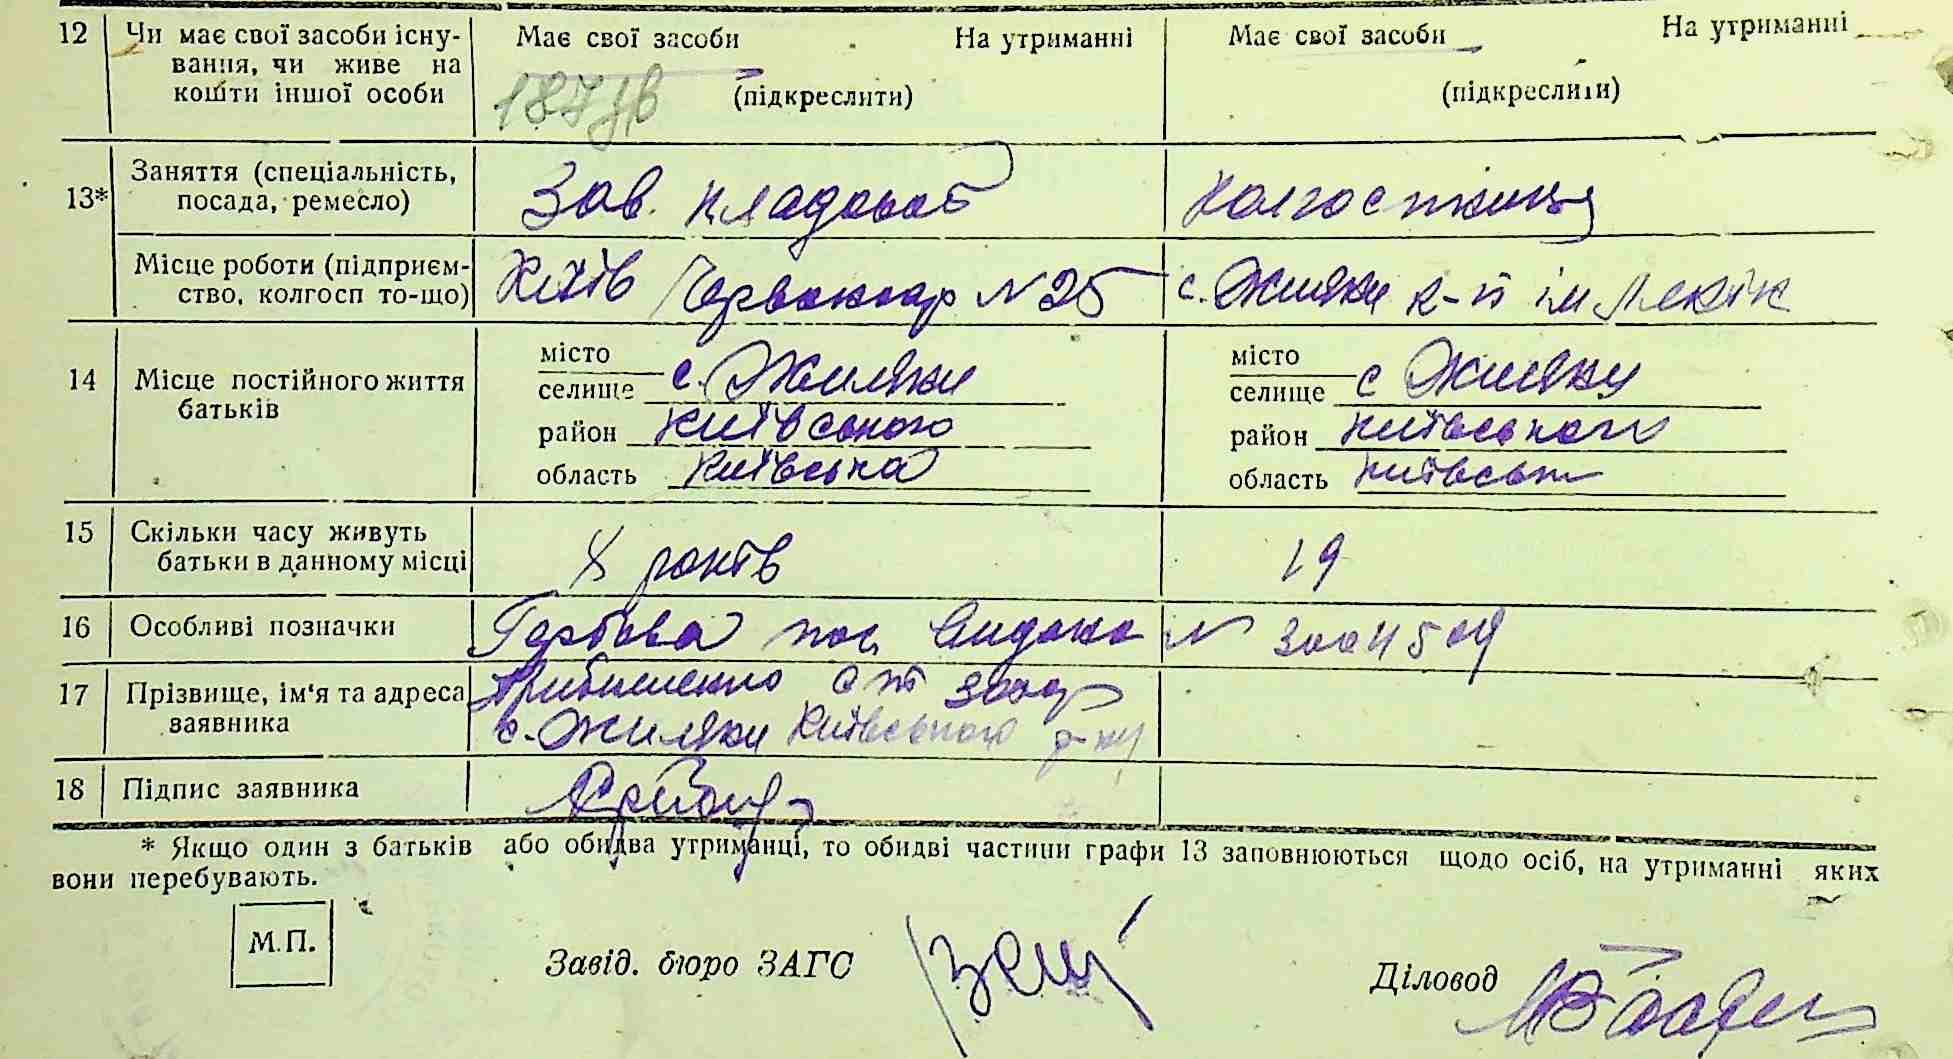 12 Чи має свої засоби існу- Має свої засоби На утриманні Має свої засоби На утриманні
вання, чи живе на
кошти іншої особи (підкреслити) (підкреслити)
187
13* Заняття (спеціальність, Зав. кладовой Колгоспниця
посада, ремесло)
Місце роботи (підприєм- Київ №25 с. Жиляни к-п ім
ство, колгосп то-що)
14 Місце постійного життя місто місто
батьків селище с. Жиляни селище с Жиляни
район Київського район Київського
область Київська область Київська
15 Скільки часу живуть 8 років 19
батьки в данному місці
16 Особливі позначки Гербова видано N 3004504
17 Прізвище, ім'я та адреса
заявника с. Жиляни Київського р-ну
18 Підпис заявника
* Якщо один з батьків або обидва утриманці, то обидві частини графи 13 заповнюються щодо осіб, на утриманні яких
вони перебувають.
М.П.
Завід. бюро ЗАГС Діловод